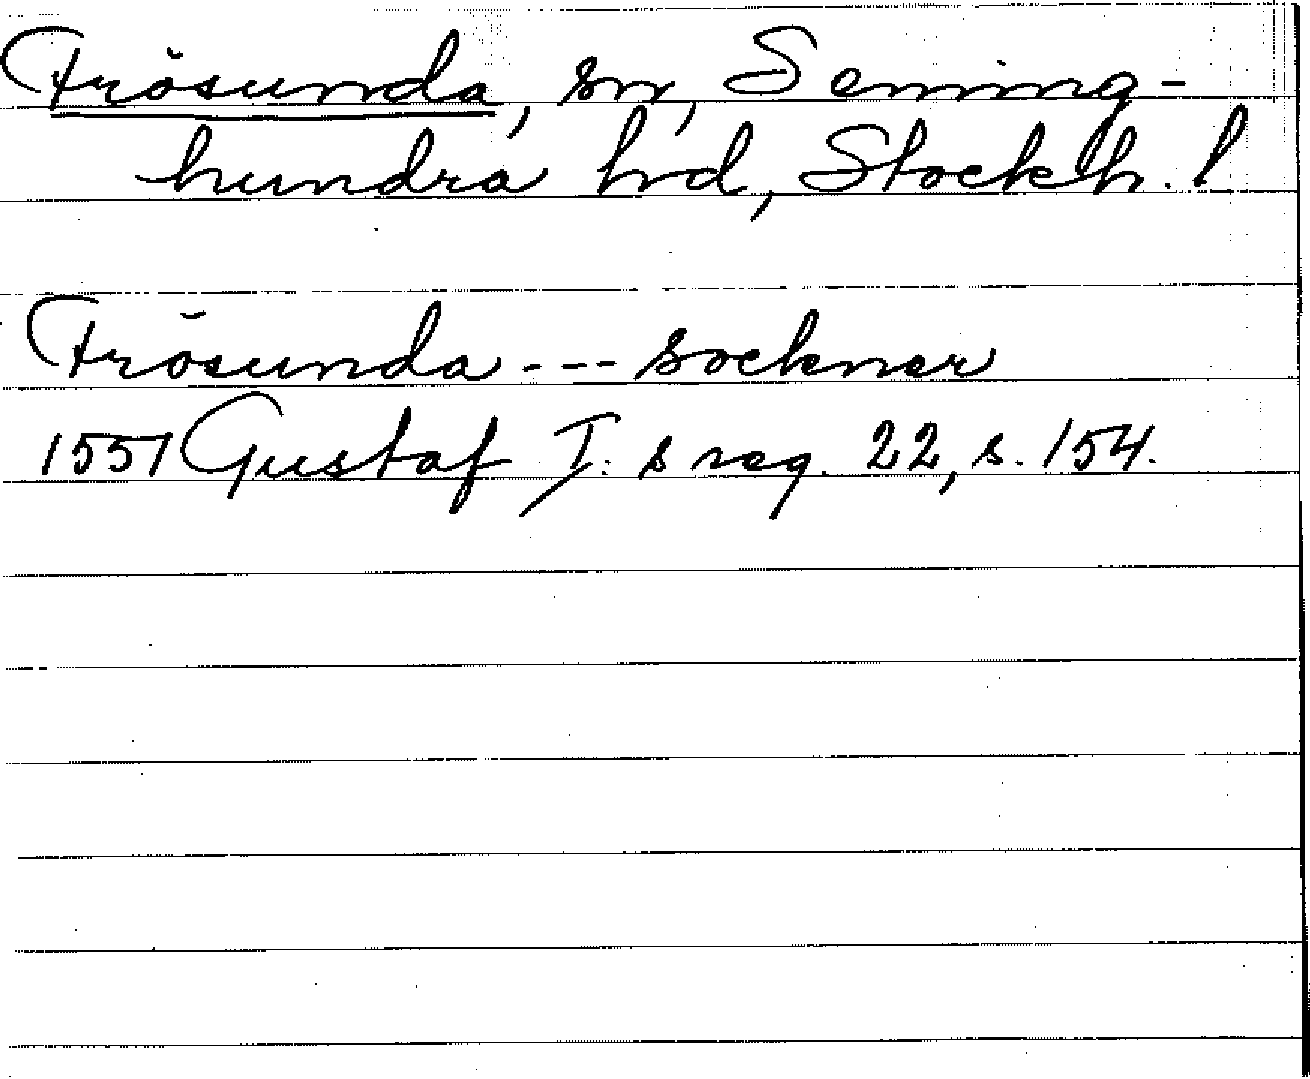 Frösunda, sn, Seming-
hundra hrd, Stockh. l
Frösunda --- socknar
1551 Gustaf I: s reg. 22, s. 154.